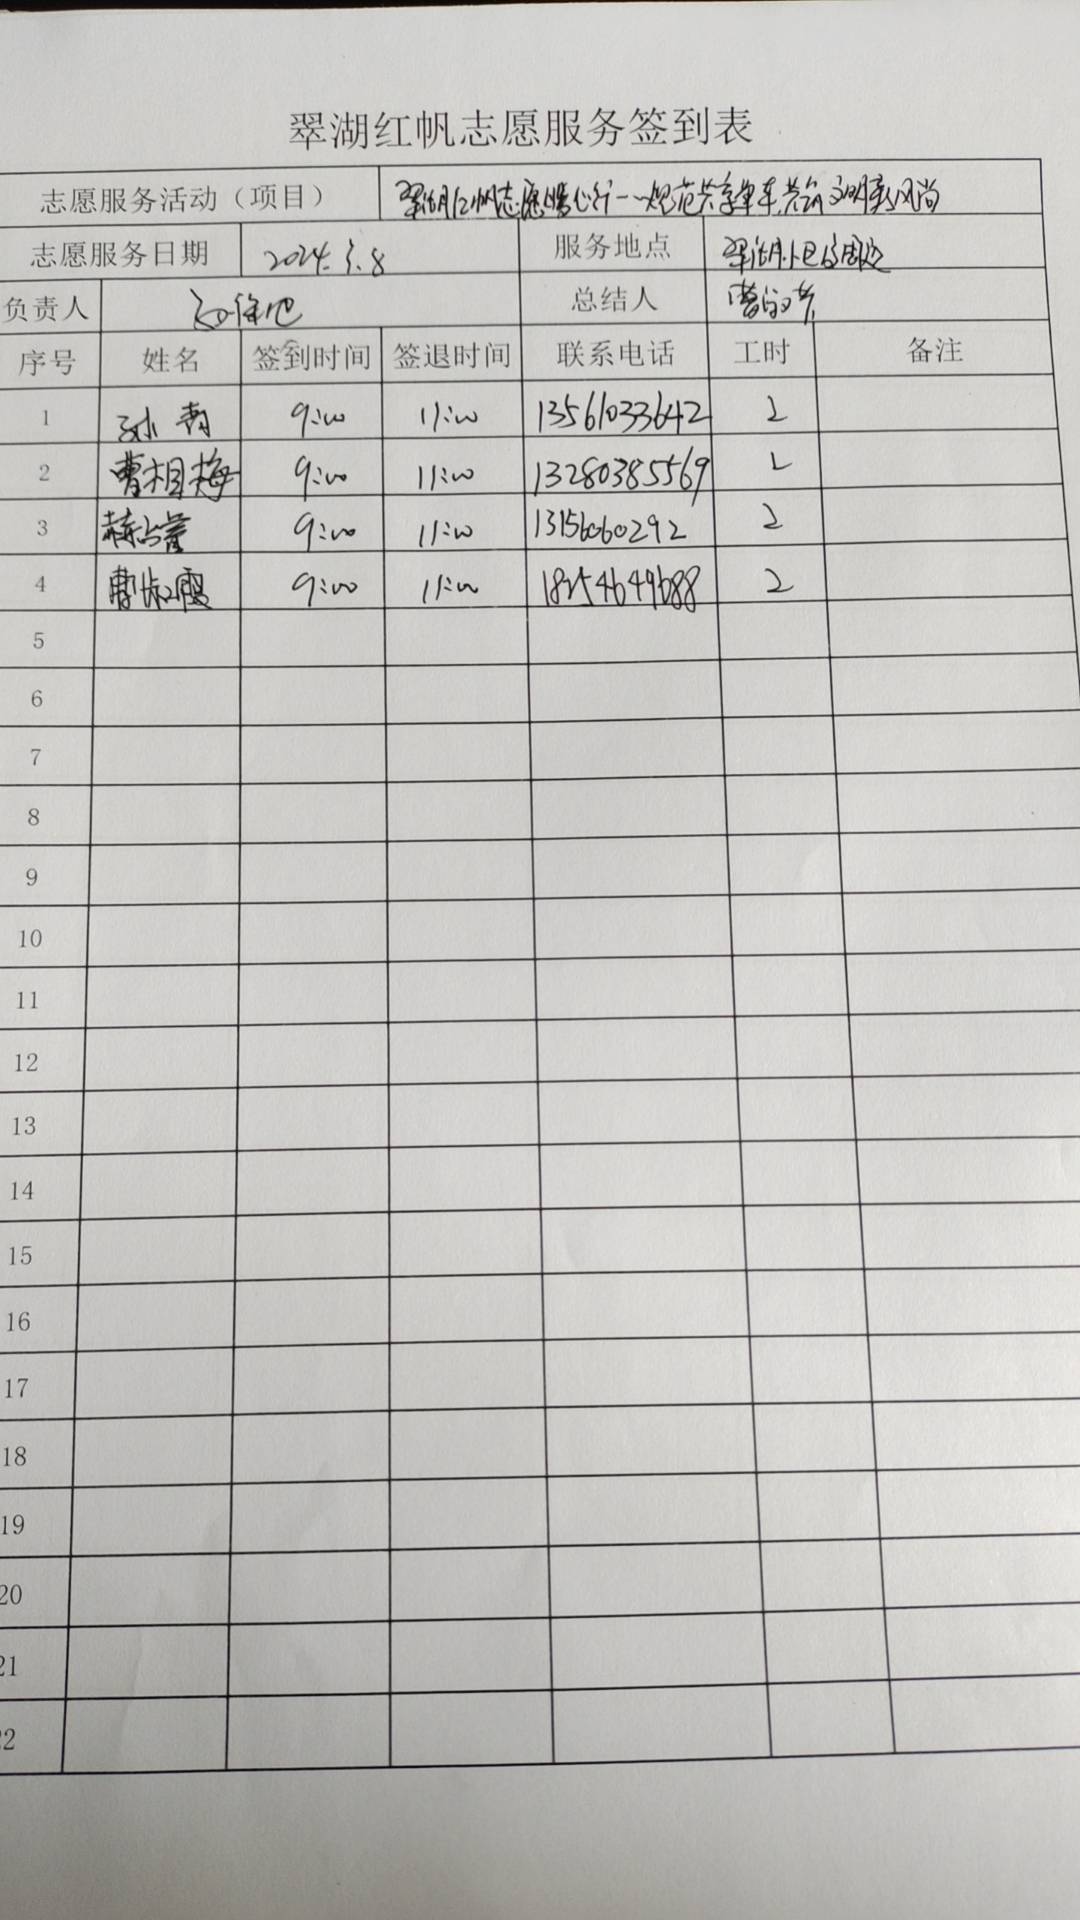 翠湖红帆志愿服务签到表
志愿服务活动（项目） 翠湖红帆志愿暖心行——规范共享单车,共筑文明新风尚
志愿服务日期 2024.3.8 服务地点 翠湖小区周边
负责人 总结人 曹
序号 姓名 签到时间 签退时间 联系电话 工时 备注
1 孙青 9:00 11:00 13561033642 2
2 曹相梅 9:00 11:00 13280385569 2
3 9:00 11:00 13156060292 2
4 曹淑霞 9:00 11:00 18254649688 2
5
6
7
8
9
10
11
12
13
14
15
16
17
18
19
20
21
22